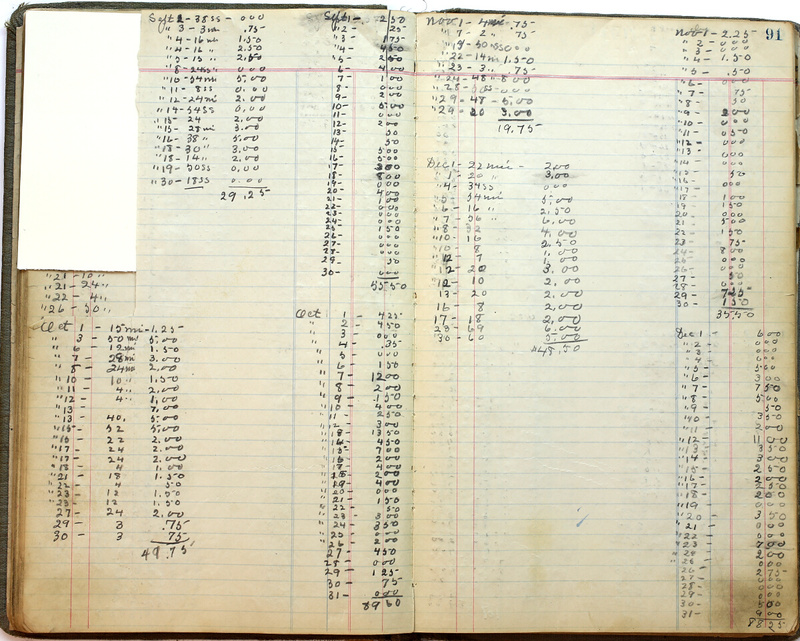 Sept 2 - 38ss - 000
" 3 - 3mi .75
" 4 - 16mi 1.50
" 4 - 16 " 2.50
" 5 - 15 " 2.50
" 8 - 24ss 000
" 10 - 54mi 5.00
" 11 - 8ss 0.00
" 12 - 24mi 2.00
" 14 - 54ss 0.00
" 15 - 24 2.00
" 15 - 28mi 3.00
" 16 - 38 " 5.00
" 18 - 30 " 3.00
" 18 - 14 " 2.00
" 19 - 50ss 0.00
" 30 - 18ss 0.00
29.25
" 21 - 10 "
" 21 - 24 "
" 22 - 4 "
" 26 - 50 "
Oct 1 - 15mi - 1.25
" 3 50mi 5.00
" 6 12mi 1.50
" 7 28mi 3.00
" 8 24mi 2.00
" 10 10 " 1.50
" 11 4 " 2.00
" 12 4 " 1.00
" 13
" 13 40, 5.00
" 15 52 5.00
22 2.00
" 17 24 2.00
" 17 24 2.00
" 18 4 1.00
" 21 18 1.50
" 22 4 50
" 23 12 1.50
" 23 12 1.50
27 24 2.00
29 3 .75
30 3 75
49.75
Sept 1 - 250
" 2 - 25
" 3 - 175
" 4 - 450
" 5 - 250
6 - 400
7 - 100
8 - 000
9 - 200
10 - 500
11 - 000
12 - 200
13 - 50
14 - 50
15 500
16 - 500
17 - 300
18 - 800
19 - 000
20 - 400
21 - 100
22 - 000
23 - 000
24 - 000
25 150
26 - 000
27 - 000
28 - 000
29 - 50
30 - 000
5550
Oct 1 - 425
" 2 - 450
" 3 - 000
" 4 .35
" 5 000
" 6 150
" 7 1200
" 8 200
" 9 150
" 10 400
11 - 250
300
13 1350
14 450
15 700
200
400
200
19 400
20 000
21 150
22 50
23 300
24 350
25 000
26 200
27 450
28 000
29 125
30 - 75
31 - 000
8960
Nov 1 - 4mi .75
" 7 - 2 " 75
" 19 - 50ss 000
" 22 - 14mi 1.50
" 23 - 3 " .75
" 24 - 48 " 5.00
" 29 - 48 - 5.00
" 29 20 3.00
19.75
Dec 1 - 22mi - 2.00
" 1 - 20 " 3.00
" 4 - 34ss 000
" 5 - 54mi 5.00
" 6 - 16 " 2.50
" 7 56 " 6.00
" 8 32 4.00
" 10 16 2.50
" 10 8 1.00
" 12 7 1.00
" 12 20 3.00
" 12 10 2.00
" 13 20 2.00
16 8 2.00
17 - 18 2.00
23 69 6.00
30 - 60 5.00
48.50
Nov 1 - 2.25 91
" 2 - 000
" 3 - 000
" 4 - 1.50
" 5 - .50
" 6 - 000
" 7 - 75
" 8 - 50
" 9 200
" 10 - 000
" 11 - 050
" 12 - 000
" 13 - 000
" 14 000
" 15 50
" 16 - 000
" 17 - 000
18 100
19 150
20 - 000
21 - 000
22 150
23 75
24 - 800
25 - 000
26 - 000
27 50
28 - 000
29 - 725
30 - 150
3550
Dec 1 - 600
" 2 - 000
" 3 - 000
" 4 - 000
" 5 - 50
" 6 300
" 7 - 750
" 8 500
" 9 50
" 10 350
" 11 200
" 12 1100
" 13 350
" 14 300
" 15 250
" 16 200
" 17 250
" 18 200
" 19 000
" 20 350
" 21 000
" 22 000
" 23 700
24 200
25 000
26 275
27 - 000
28 - 000
29 - 000
30 - 500
31 - 900
8825